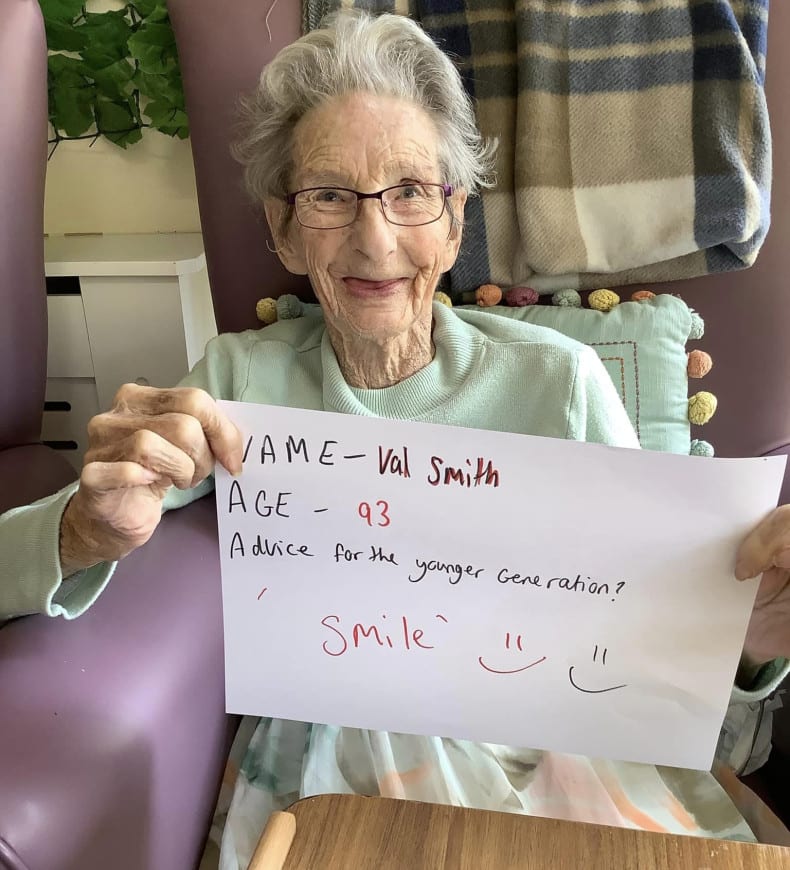 NAME - Val Smith
AGE - 93
Advice for the younger Generation?
'Smile'